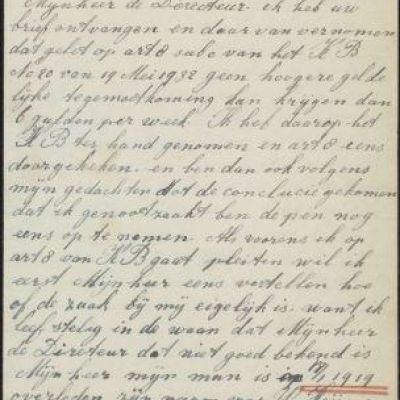 Mijnheer de Directeur. ik heb uw
brief ontvangen en daar van vernomen
dat gelet op art 8 sub c van het K B
No 20 van 19 Mei 1932 geen hoogere gelde
lijke tegemoetkoming kan krijgen dan
6 gulden per week. Ik heb daarop het
K B ter hand genomen en art 8 eens
doorgekeken. en ben dan ook volgens
mijn gedachten tot de conclucie gekomen
dat ik genootzaakt ben de pen nog
eens op te nemen. Als vorens ik op
art 8 van K B gaat pleiten wil ik
eerst Mijnheer eens vertellen hoe
of de zaak bij mij eigelijk is. want ik
leef stelig in de waan dat Mijnheer
de Direteur dat niet goed bekend is
Mijnheer mijn man is 1919
overleden zijn naam was